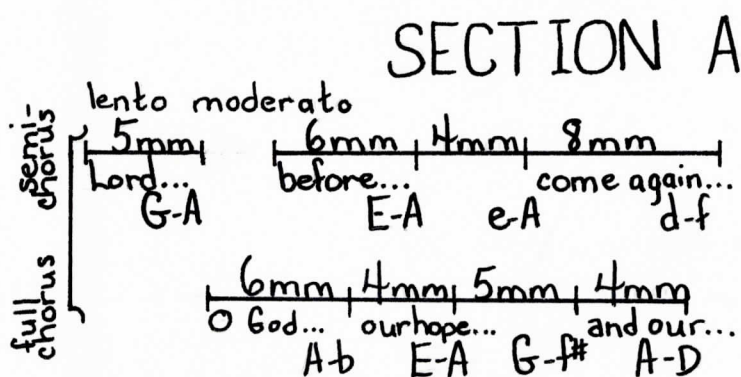 SECTION A
lento moderato
semi-
chorus
5mm 6mm 4mm 8mm
Lord... before... come again...
G-A E-A e-A d-f
full
chorus
6mm 4mm 5mm 4mm
O God... our hope... and our...
A-b E-A G-f# A-D